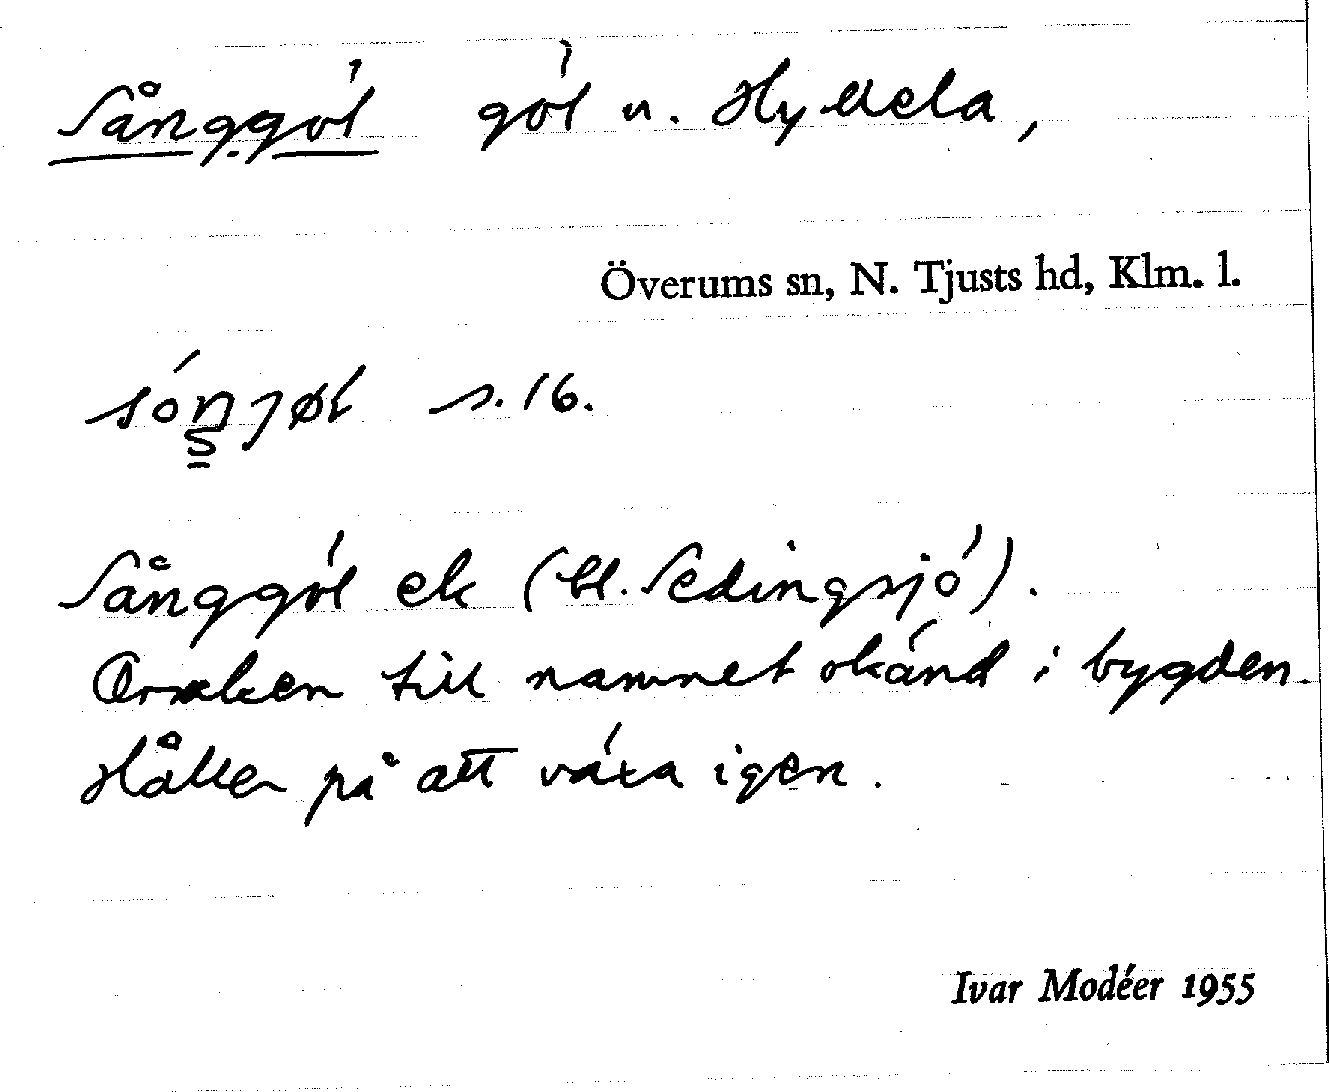 Sånggöl göl n. Hyllela,
Överums sn, N. Tjusts hd, Klm. l.
s. 16.
Sånggöl ek (bl. Sedingsjö).
Orsaken till namnet okänd i bygden.
Håller på att växa igen.
Ivar Modéer 1955